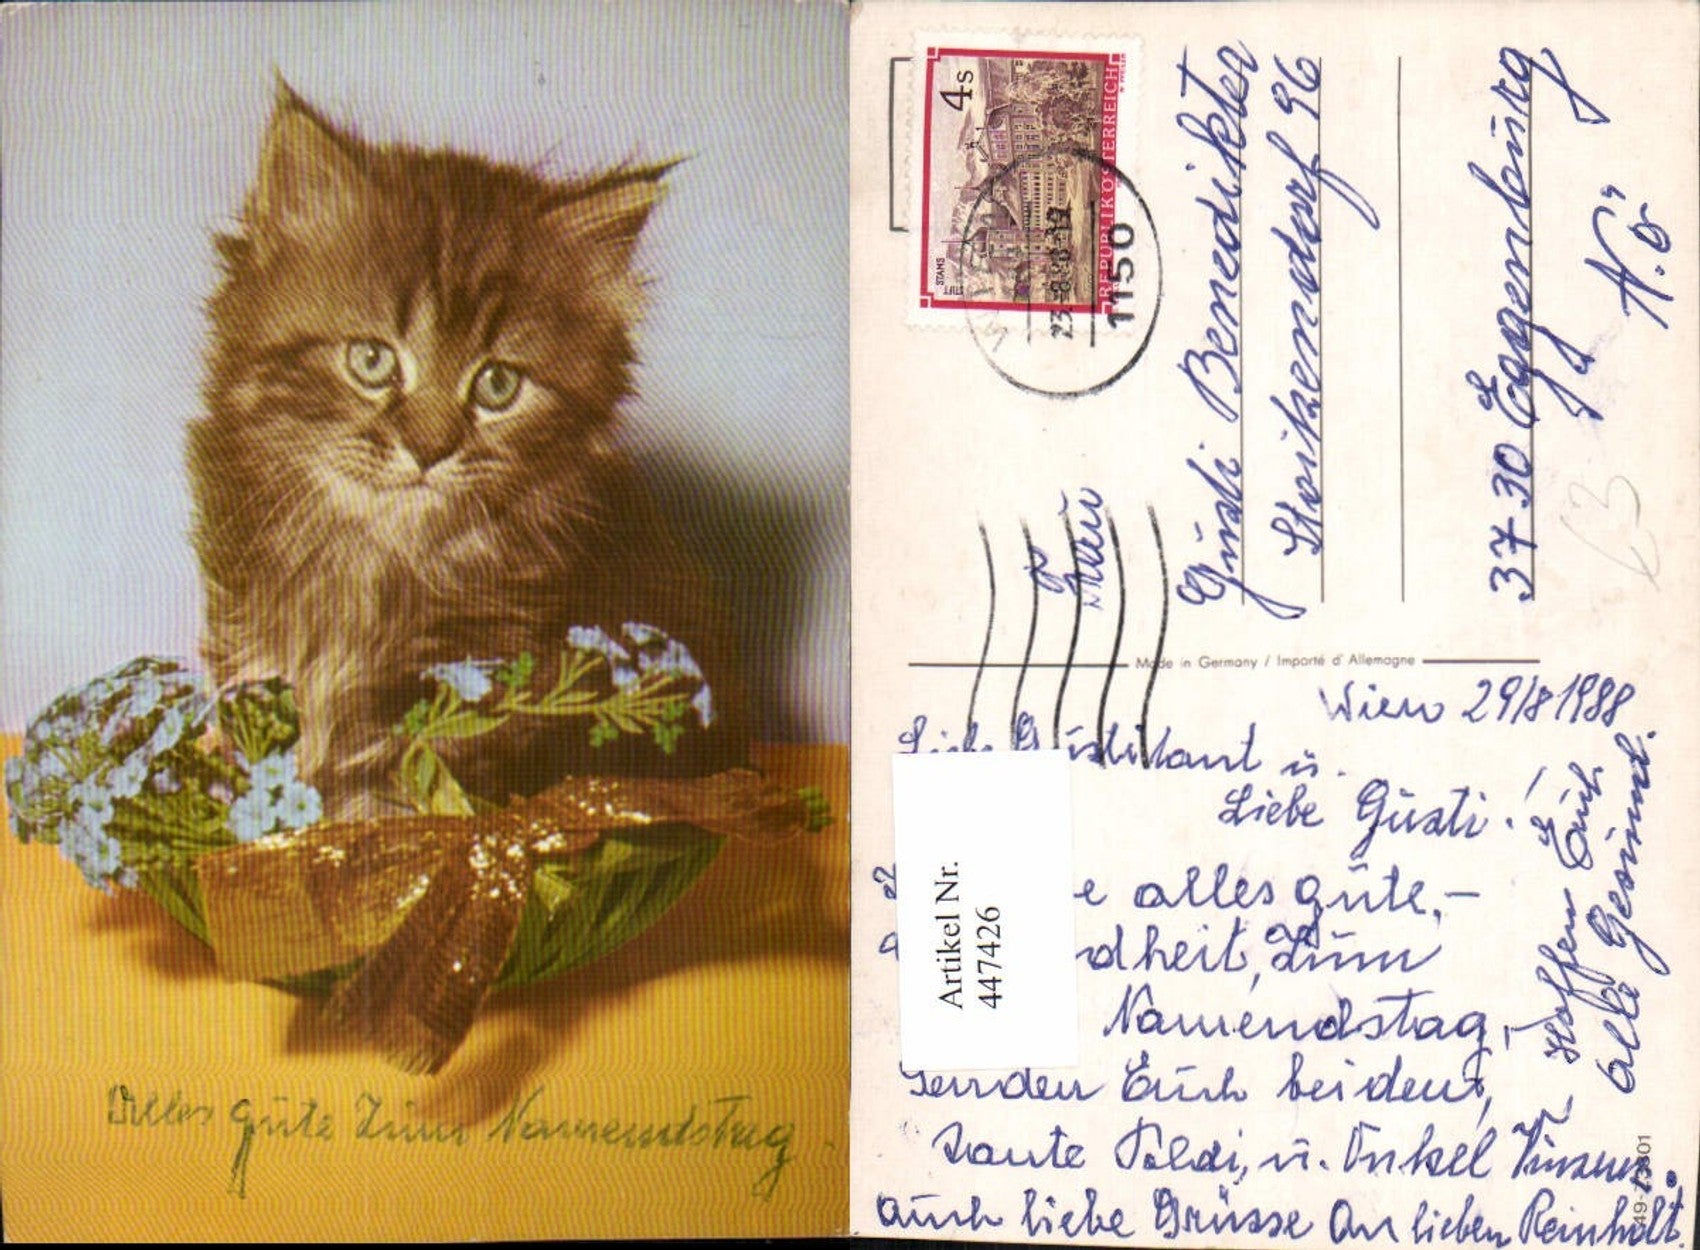 Alles gute zum Namenstag
4s
STIFT STAMS
REPUBLIK ÖSTERREICH
1150
Frau
Gusti Benedikter
Stoitzendorf 96
3730 Eggenburg
N.Ö
Made in Germany / Importé d'Allemagne
Wien 29/8 1988
Liebe Gustitant u.
Liebe Gusti!
alles gute,-
zum
Namendstag,
Senden Euch beiden,
Tante Poldi, u. Onkel
auch liebe Grüsse an lieben Reinholt.
Hoffen Euch
alle Gesund.
Artikel Nr.
447426